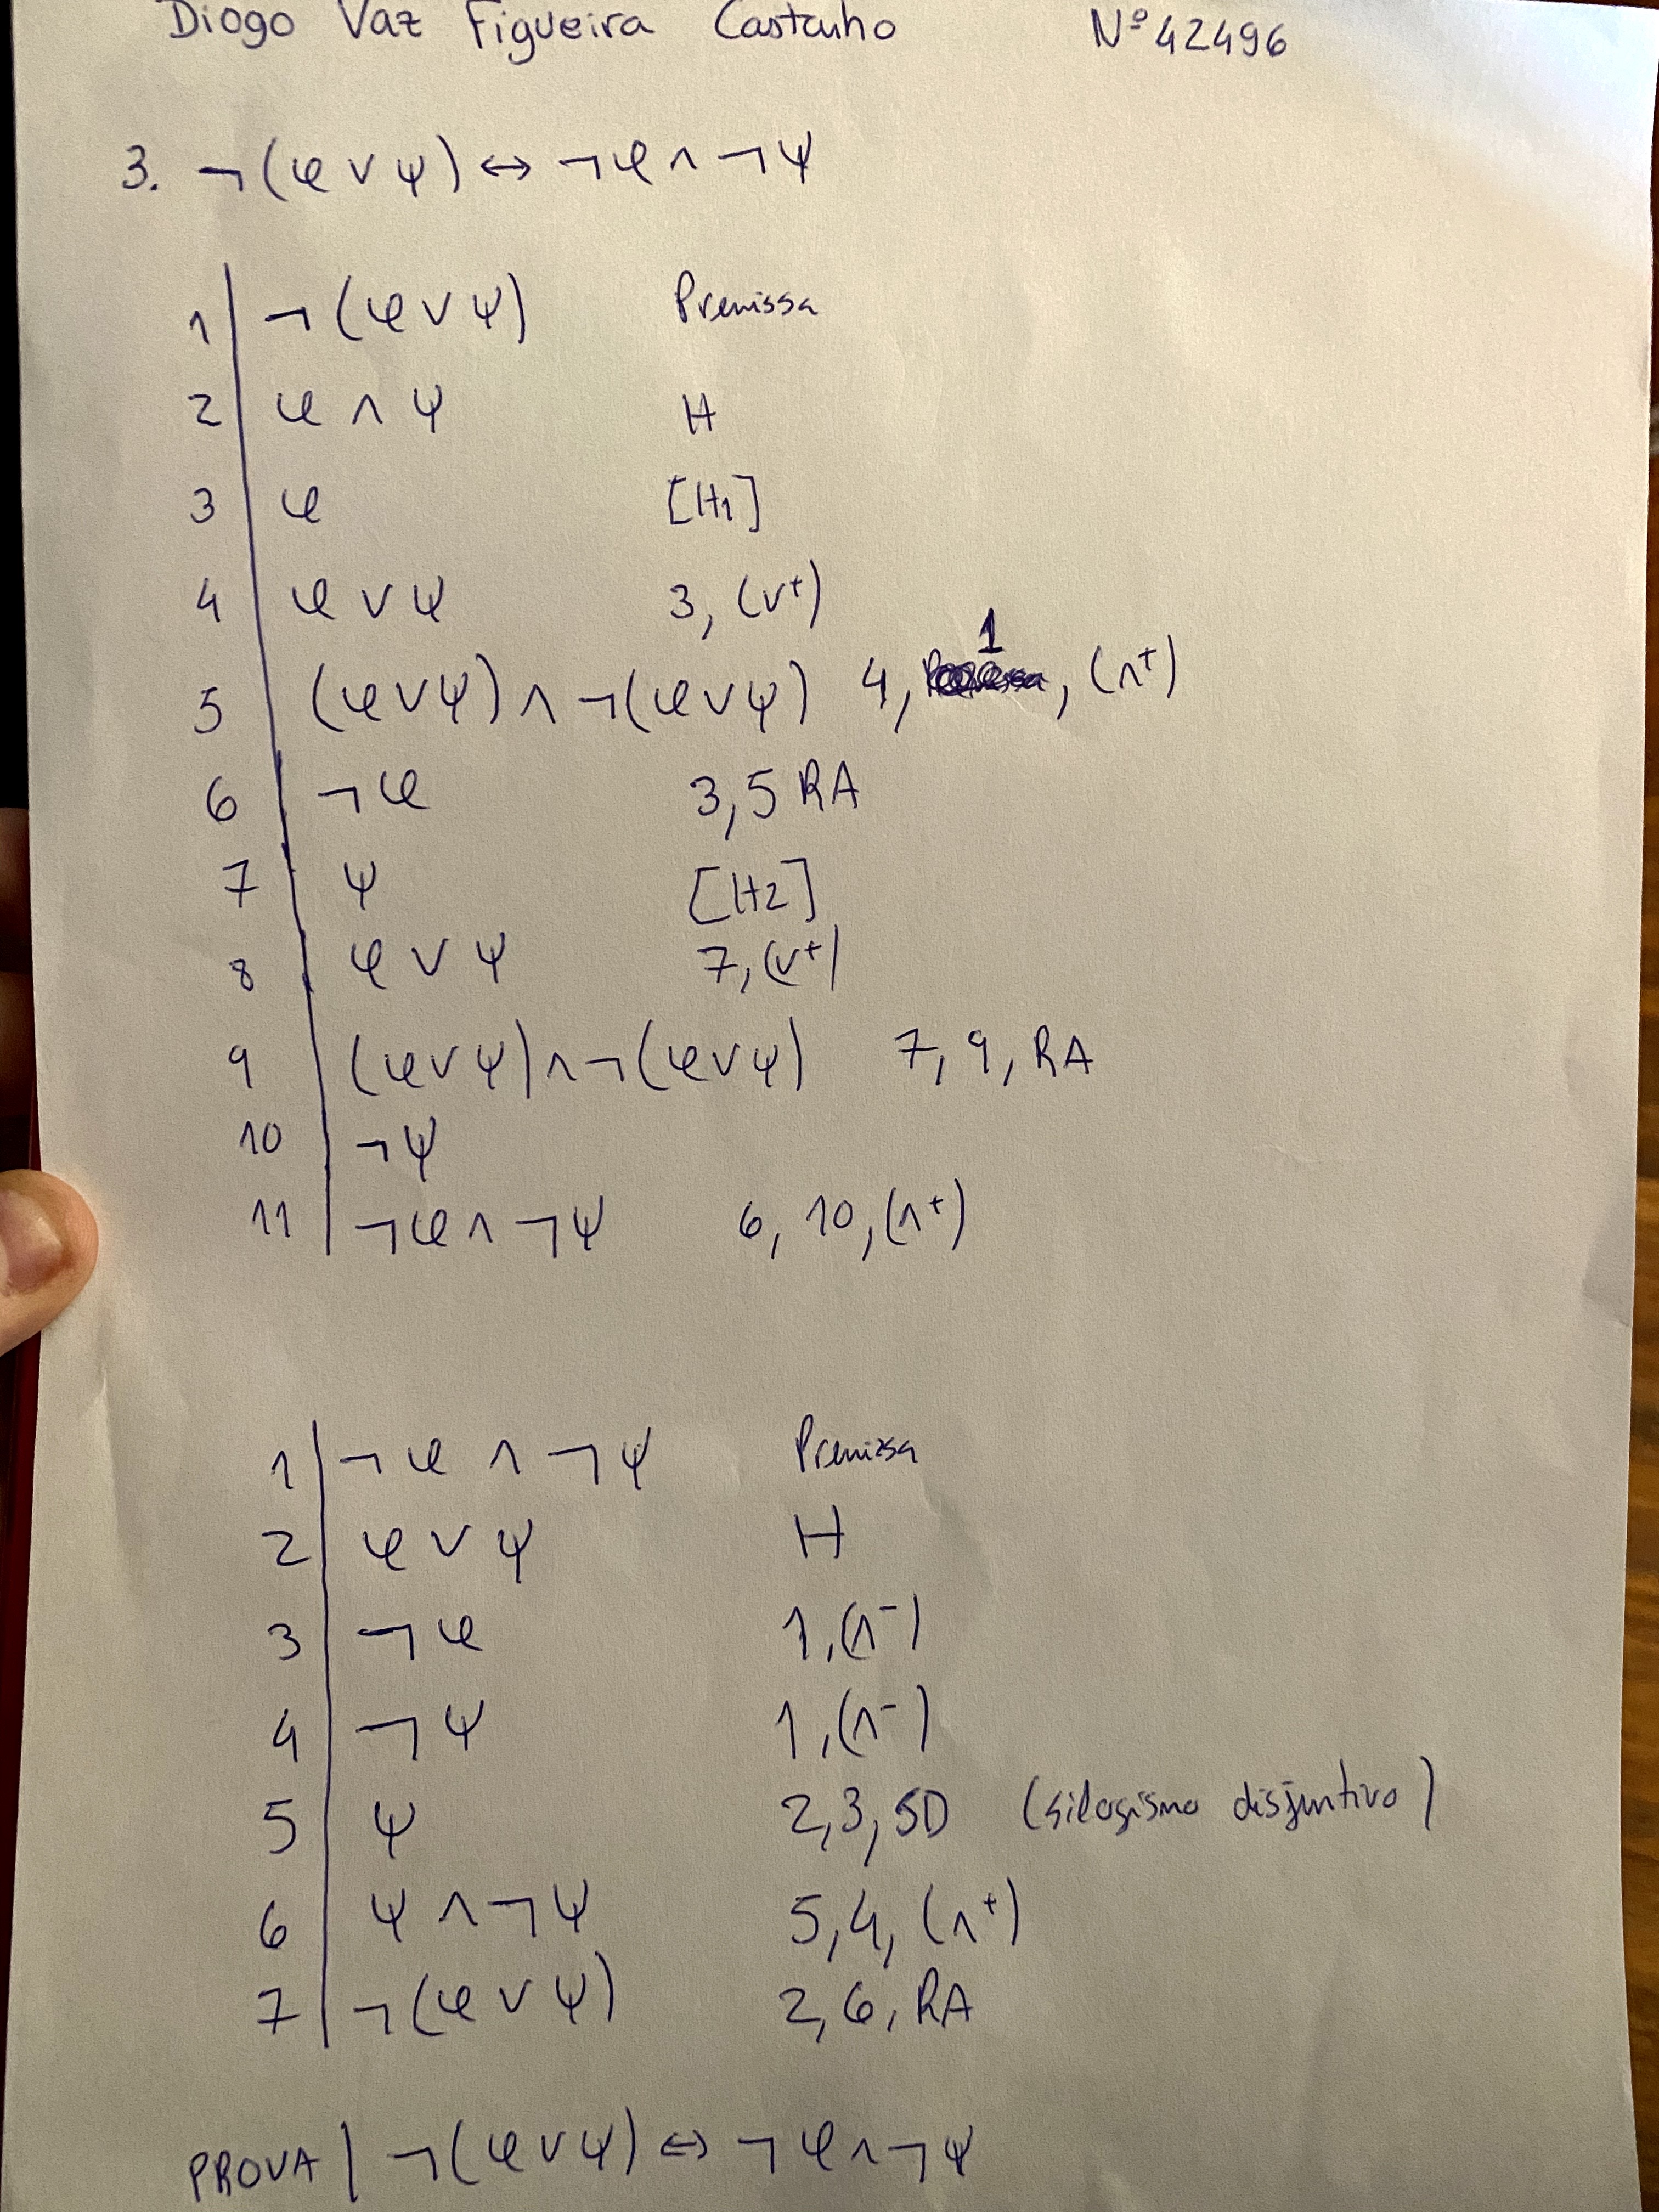 Diogo Vaz Figueira Castanho Nº 42496
3. ¬(φ ∨ ψ) ↔ ¬φ ∧ ¬ψ
1 ¬(φ ∨ ψ) Premissa
2 φ ∧ ψ H
3 φ [H1]
4 φ ∨ ψ 3, (∨⁺)
5 (φ ∨ ψ) ∧ ¬(φ ∨ ψ) 4, 1, (∧⁺)
6 ¬φ 3, 5 RA
7 ψ [H2]
8 φ ∨ ψ 7, (∨⁺)
9 (φ ∨ ψ) ∧ ¬(φ ∨ ψ) 7, 9, RA
10 ¬ψ
11 ¬φ ∧ ¬ψ 6, 10, (∧⁺)
1 ¬φ ∧ ¬ψ Premissa
2 φ ∨ ψ H
3 ¬φ 1, (∧⁻)
4 ¬ψ 1, (∧⁻)
5 ψ 2, 3, SD (silogismo disjuntivo)
6 ψ ∧ ¬ψ 5, 4, (∧⁺)
7 ¬(φ ∨ ψ) 2, 6, RA
PROVA | ¬(φ ∨ ψ) ↔ ¬φ ∧ ¬ψ